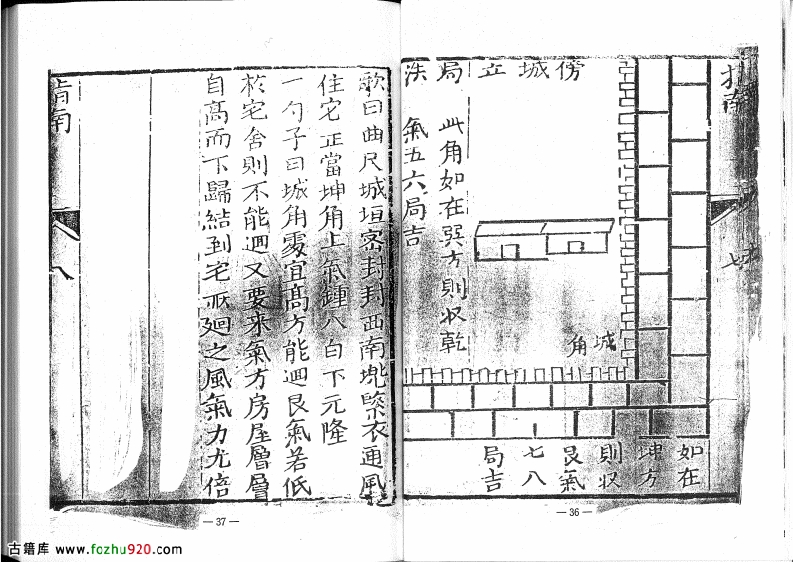 指南
七
傍城立局
城角
如在
坤方
則收
艮氣
七八
局吉
此角如在巽方則收乾
氣五六局吉
法
歌曰曲尺城垣密封封西南
衣通風
住宅正當坤角上氣鍾八白下元隆
一勺子曰城角處宜高方能迴艮氣若低
於宅舍則不能迴又要來氣方房屋層層
自高而下歸結到宅
廻之風氣力尤倍
指南
八
— 36 —
— 37 —
古籍库 www.fozhu920.com